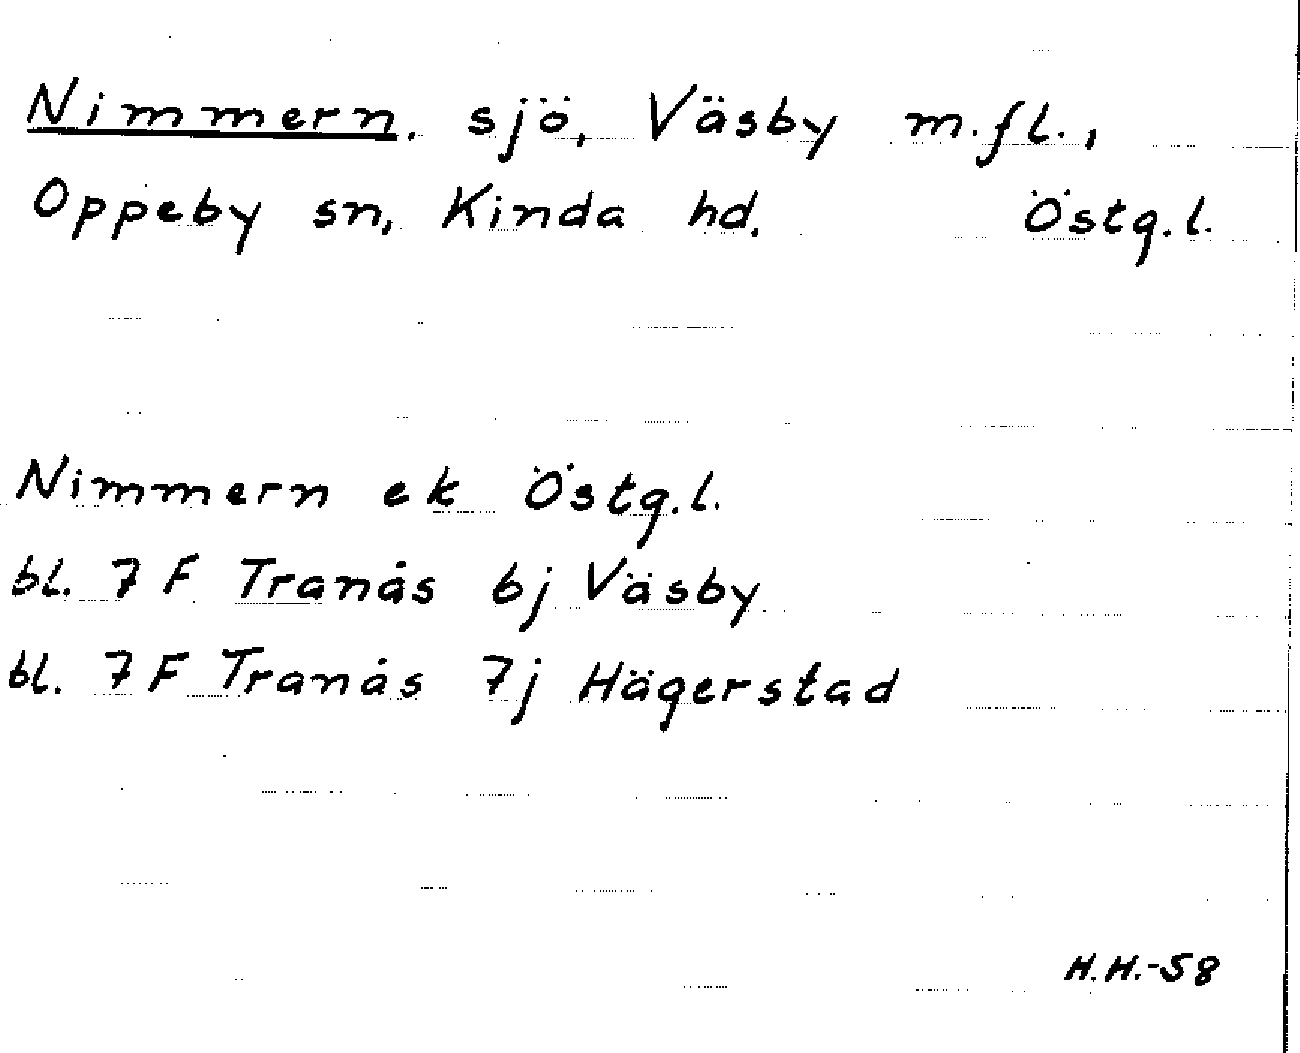 Nimmern. sjö, Väsby m.fl.,
Oppeby sn, Kinda hd. Östg.l.
Nimmern ek Östg.l.
bl. 7 F Tranås 6j Väsby
bl. 7 F Tranås 7j Hägerstad
H.H.-58